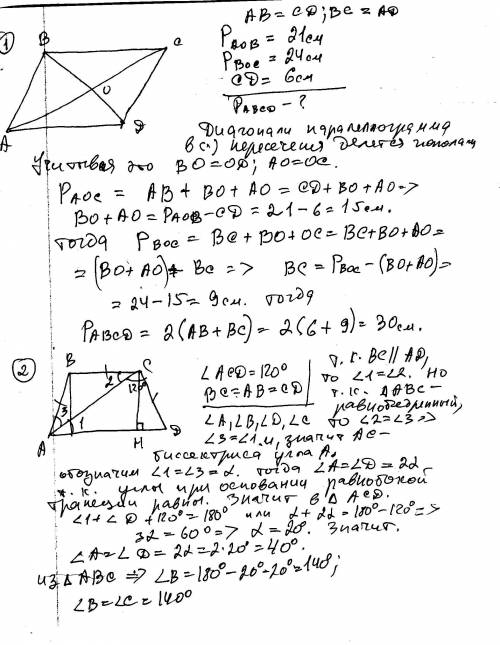 1
AB = CD; BC = AD
P AOB = 21 см
P BOC = 24 см
CD = 6 см
P ABCD - ?
B
C
O
A
D
Диагонали параллелограмма
в (·) пересечения делятся пополам
Учитывая это BO=OD; AO=OC.
P AOC = AB + BO + AO = CD + BO + AO =>
BO + AO = P AOB - CD = 21 - 6 = 15 см.
тогда P BOC = BC + BO + OC = BC + BO + AO =
= (BO + AO) + BC => BC = P BOC - (BO + AO) =
= 24 - 15 = 9 см. тогда
P ABCD = 2(AB + BC) = 2(6 + 9) = 30 см.
2
B
C
2
3
1
A
H
D
∠ACD = 120°
BC = AB = CD
∠A, ∠B, ∠D, ∠C
т.к. BC || AD,
то ∠1 = ∠2. Но
т.к. ΔABC -
равнобедренный,
то ∠2 = ∠3 =>
∠3 = ∠1 и, значит AC -
биссектриса угла A.
обозначим ∠1 = ∠3 = α. тогда ∠A = ∠D = 2α
т.к. углы при основании равнобокой
трапеции равны. Значит в Δ ACD.
∠1 + ∠D + 120° = 180° или α + 2α = 180° - 120° =>
3α = 60° => α = 20°. Значит.
∠A = ∠D = 2α = 2·20° = 40°.
из Δ ABC => ∠B = 180° - 20° - 20° = 140°;
∠B = ∠C = 140°